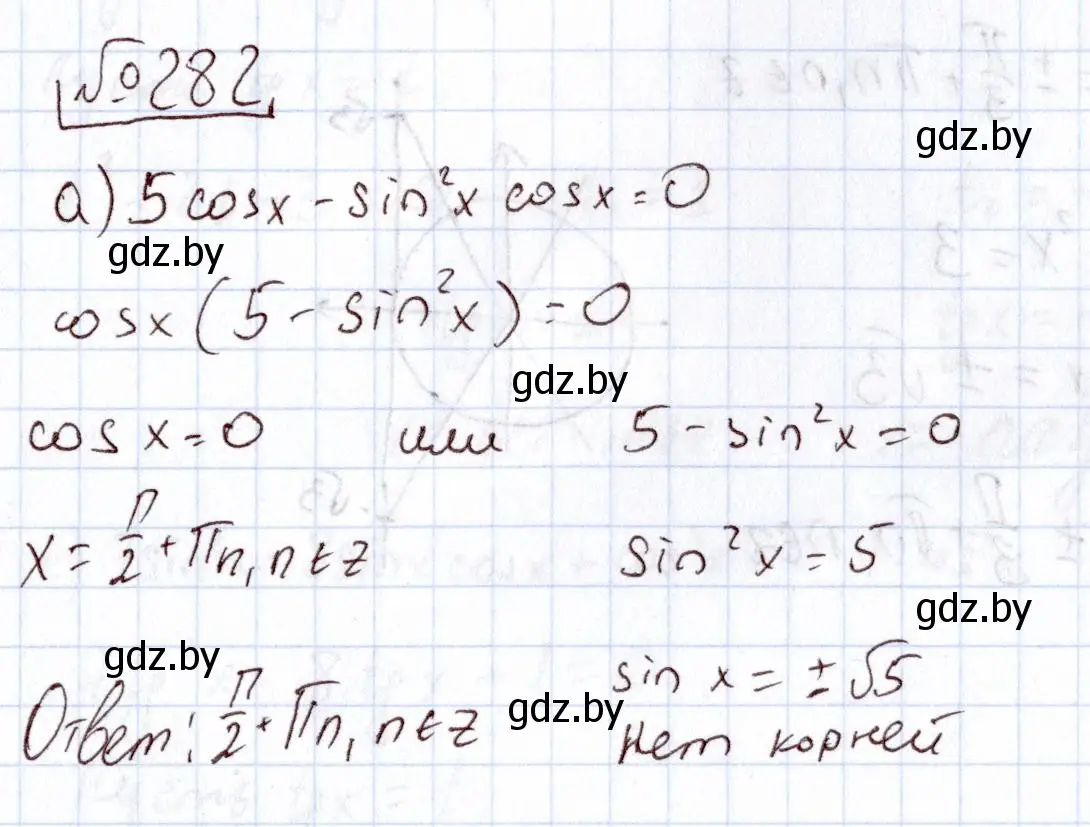 №282
gdz.by
а) 5 cosx - sin²x cosx = 0
gdz.by
cosx (5 - sin²x) = 0
gdz.by
cos x = 0 или 5 - sin²x = 0
x = π/2 + πn, n ∈ z sin²x = 5
gdz.by
gdz.by
sin x = ± √5
gdz.by
Ответ: π/2 + πn, n ∈ z нет корней